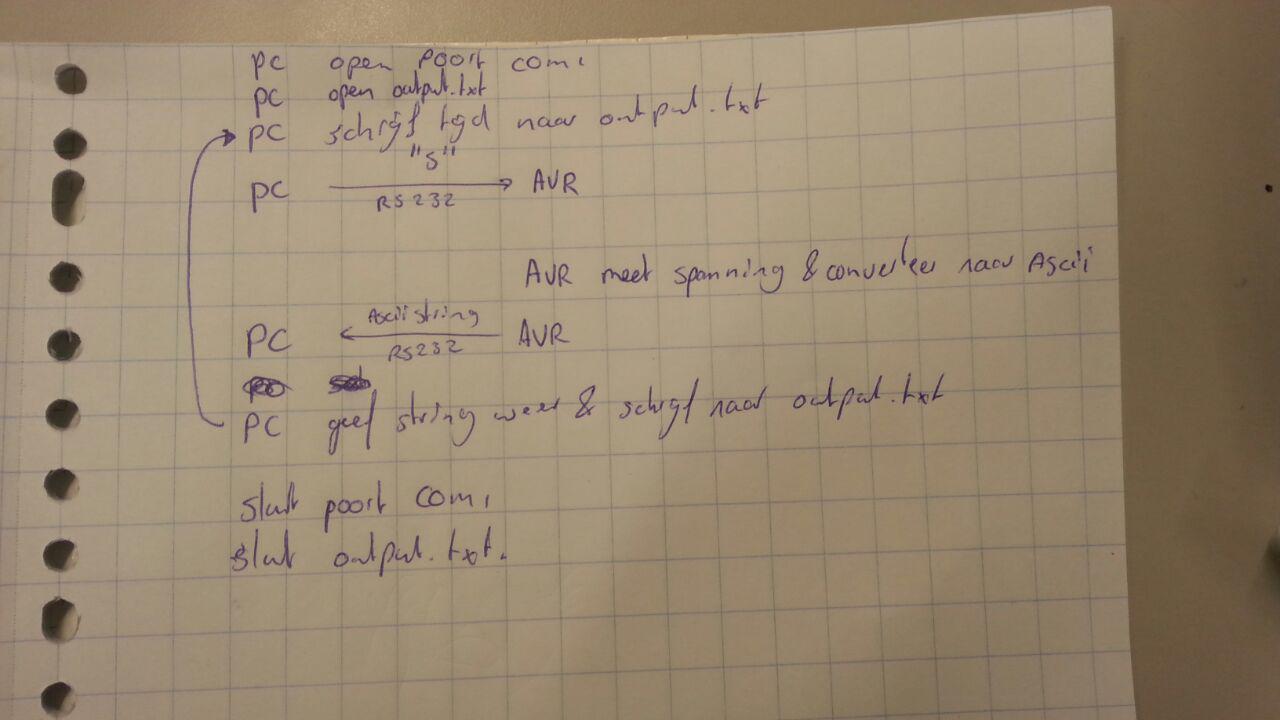 PC open Poort com1
PC open output.txt
PC schrijf tijd naar output.txt
"S"
PC RS232 AVR
AVR meet spanning & converteer naar Ascii
Ascii string
PC RS232 AVR
PC geef string weer & schrijf naar output.txt
sluit poort com1
sluit output.txt.